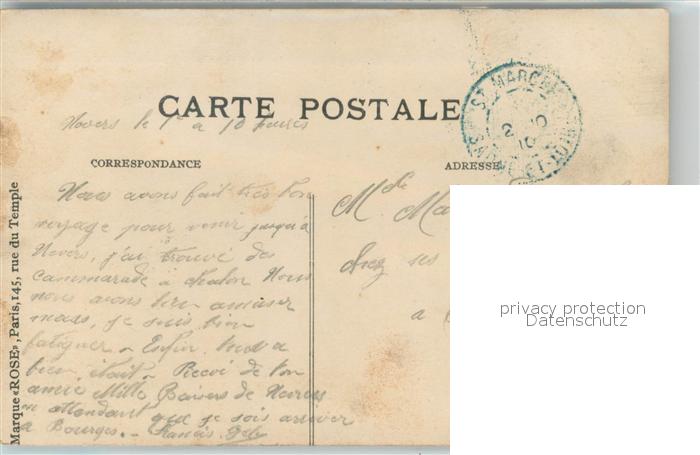 CARTE POSTALE
Nevers le 1er a 10 heures
CORRESPONDANCE
ADRESSE
Nous avons fait très bon
voyage pour venir jusqu'à
Nevers, j'ai trouvé des
cammarade à chalon Nous
nous avons bien amuser
mais, je suis bien
fatiguer. Enfin tout a
bien était. Recoi de ton
amie Mille Baisers de Nevers
en attendant que je sois arriver
a Bourges. Francis
M Ma
chez ses
a
Marque «ROSE», Paris, 145, rue du Temple
ST MARCEL
privacy protection
Datenschutz